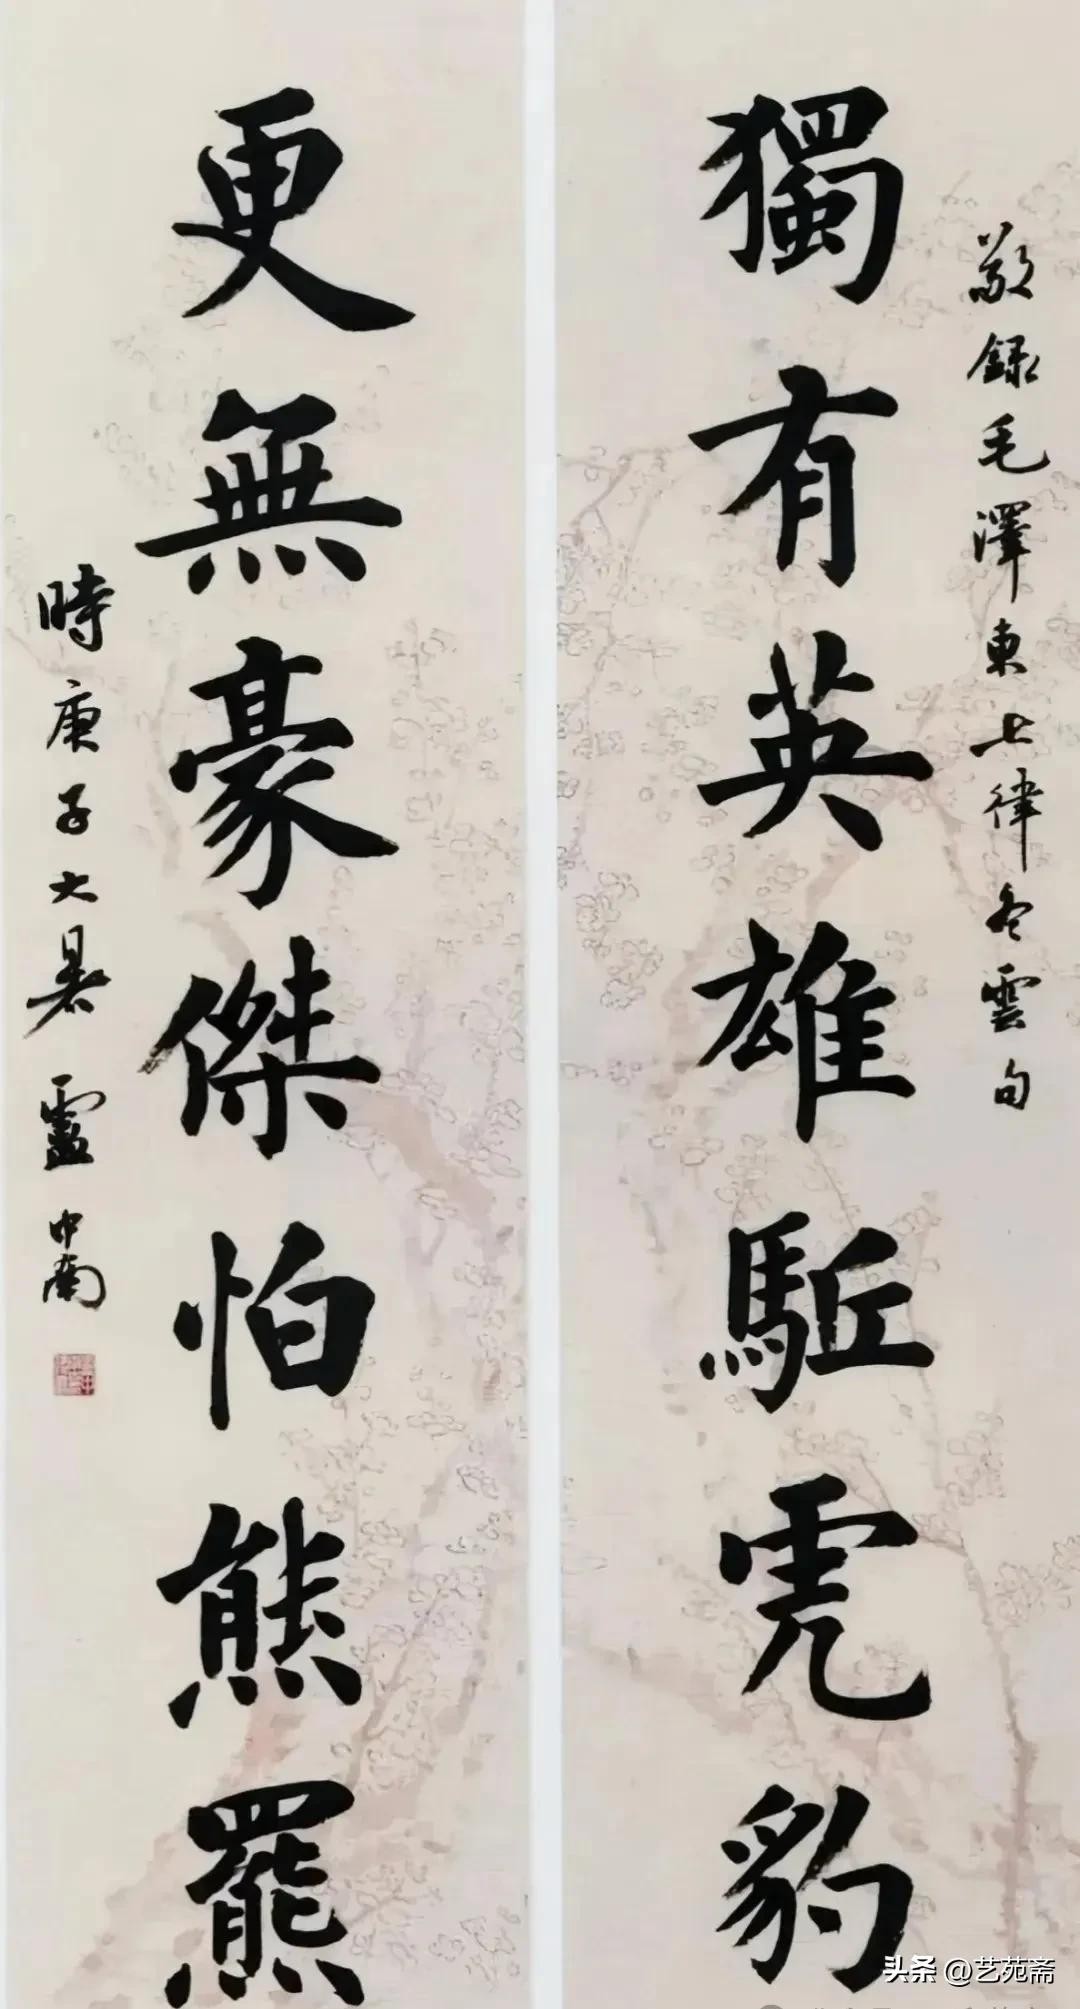 敬録毛澤東七律冬雲句
獨有英雄駈虎豹
更無豪傑怕熊羆
時庚子大暑 盧中南
头条 @艺苑斋